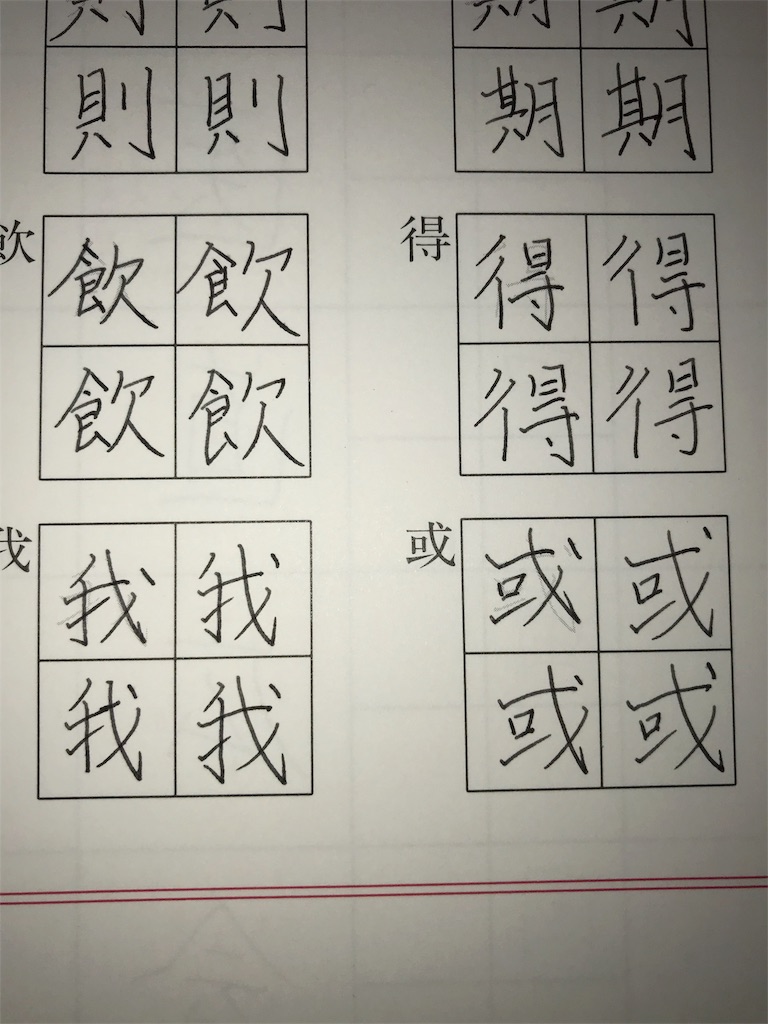 則 則 期 期
飲 飲 飲 得 得 得
飲 飲 得 得
我 我 我 或 或 或
我 我 或 或